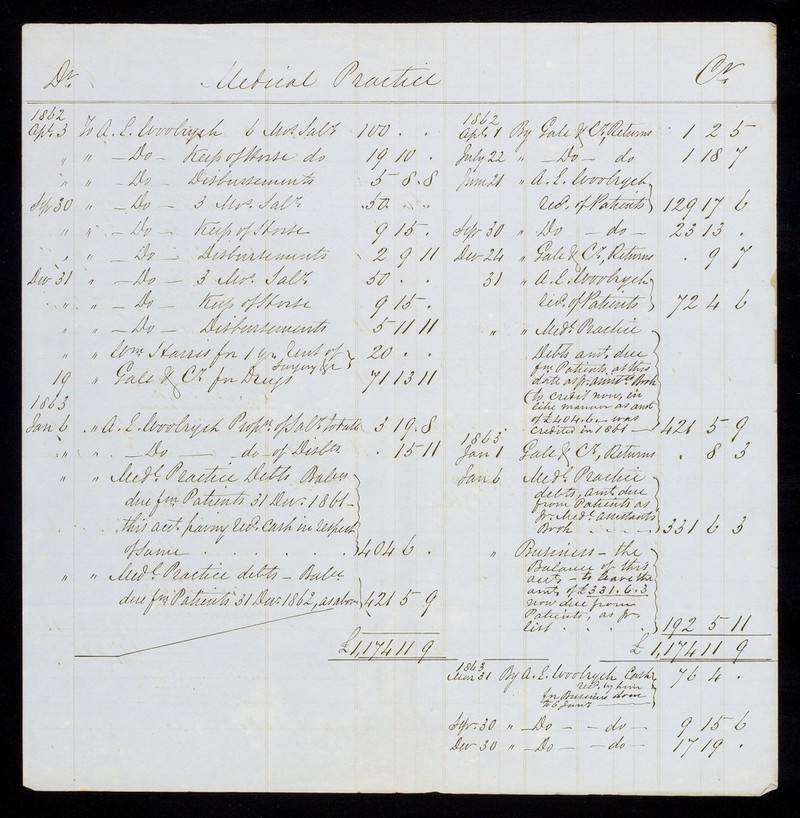 Dr. Medical Practice Cr.
1862
Apl. 3 To A. E. Woolrych 6 Mos. Saly. 100 . .
" " - Do - Keep of Horse do 19 10 .
" " - Do - Disbursements 5 8 . 8
Sep 30 " - Do - 3 Mos. Saly. 50 . .
" " - Do - Keep of Horse 9 15 .
" " - Do - Disbursements 2 9 11
Dec 31 " - Do - 3 Mos. Saly. 50 . .
" " - Do - Keep of Horse 9 15 .
" " - Do - Disbursements 5 11 11
" " Wm. Harris for 1 yr. Rent of
Surgery &c 20 . .
19 " Gale & Co. for Drugs 71 13 11
1863
Jan 6 " A. E. Woolrych Propn. of Saly. to date 3 19 . 8
" " - Do - do - of Disbts. . 15 11
" " Medl. Practice Debts, Balce
due fm. Patients 31 Dec. 1861 -
this acct. having recd. Cash in respect
of same . . . . . . 404 6 .
" " Medl. Practice debts - Balce
due fm. Patients 31 Dec. 1862, as above 421 5 9
£1,174 11 9
1862
Apl. 1 By Gale & Co., Returns 1 2 5
July 22 " - Do - do 1 18 7
June 21 " A. E. Woolrych
Recd. of Patients 129 17 6
Sep 30 " Do - do - 23 13 .
Dec 24 " Gale & Co., Returns . 9 7
31 " A. E. Woolrych
Recd. of Patients 72 4 6
" " Medl. Practice
Debts amt. due
fm. Patients, as this
date as pr. assistts. Book
to credit now, in
like manner as amt
of £404.6.- was
credited in 1861 - 421 5 9
1863
Jan 1 Gale & Co., Returns . 8 3
Jan 6 Medl. Practice
debts, amt. due
from Patients as
pr. Medl. assistants
Book . . . . 331 6 3
" Business - the
Balance of this
acct. - to leave the
amt. of £331.6.3
now due from
Patients, as pr.
list . . . . 192 5 11
£1,174 11 9
1863
Mar 31 By A. E. Woolrych Cash
recd. by him
for Business done
to 6 Jany. 76 4 .
Sep. 30 " - Do - - do - 9 15 6
Dec 30 " - Do - - do - 17 19 .